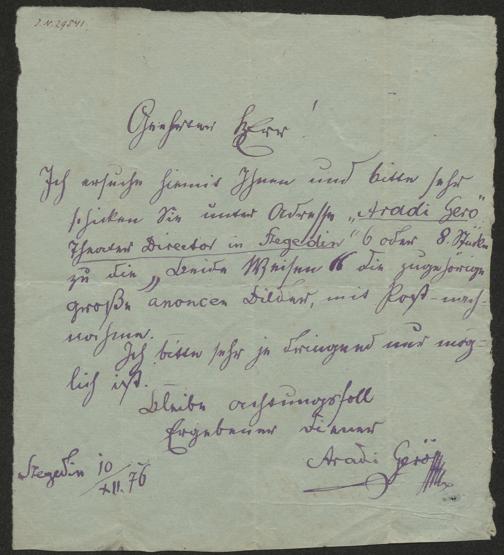 J.N. 29541
Geehrter Herr!
Ich ersuche hiemit Ihnen und bitte sehr
schicken Sie unter Adresse „Aradi Gerö"
Theater Director in Szegedin" 6 oder 8. Stücke
zu die „beide Weisen" die zugehörige
große anoncen Bilder, mit Post-nach-
nahme.
Ich bitte sehr je dringend nur mög-
lich ist.
Bleibe achtungsfoll
Ergebener Diener
Aradi Gerö
Szegedin 10/XII. 76